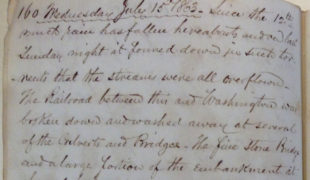 160 Wednesday July 15th 1863 - Since the 12th
much rain has fallen hereabouts and on last
Sunday night it poured down in such tor-
rents that the streams were all overflown.
The Railroad between this and Washington was
broken down and washed away at several
of the Culverts and Bridges - The fine Stone Bridge
and a large portion of the embankment at